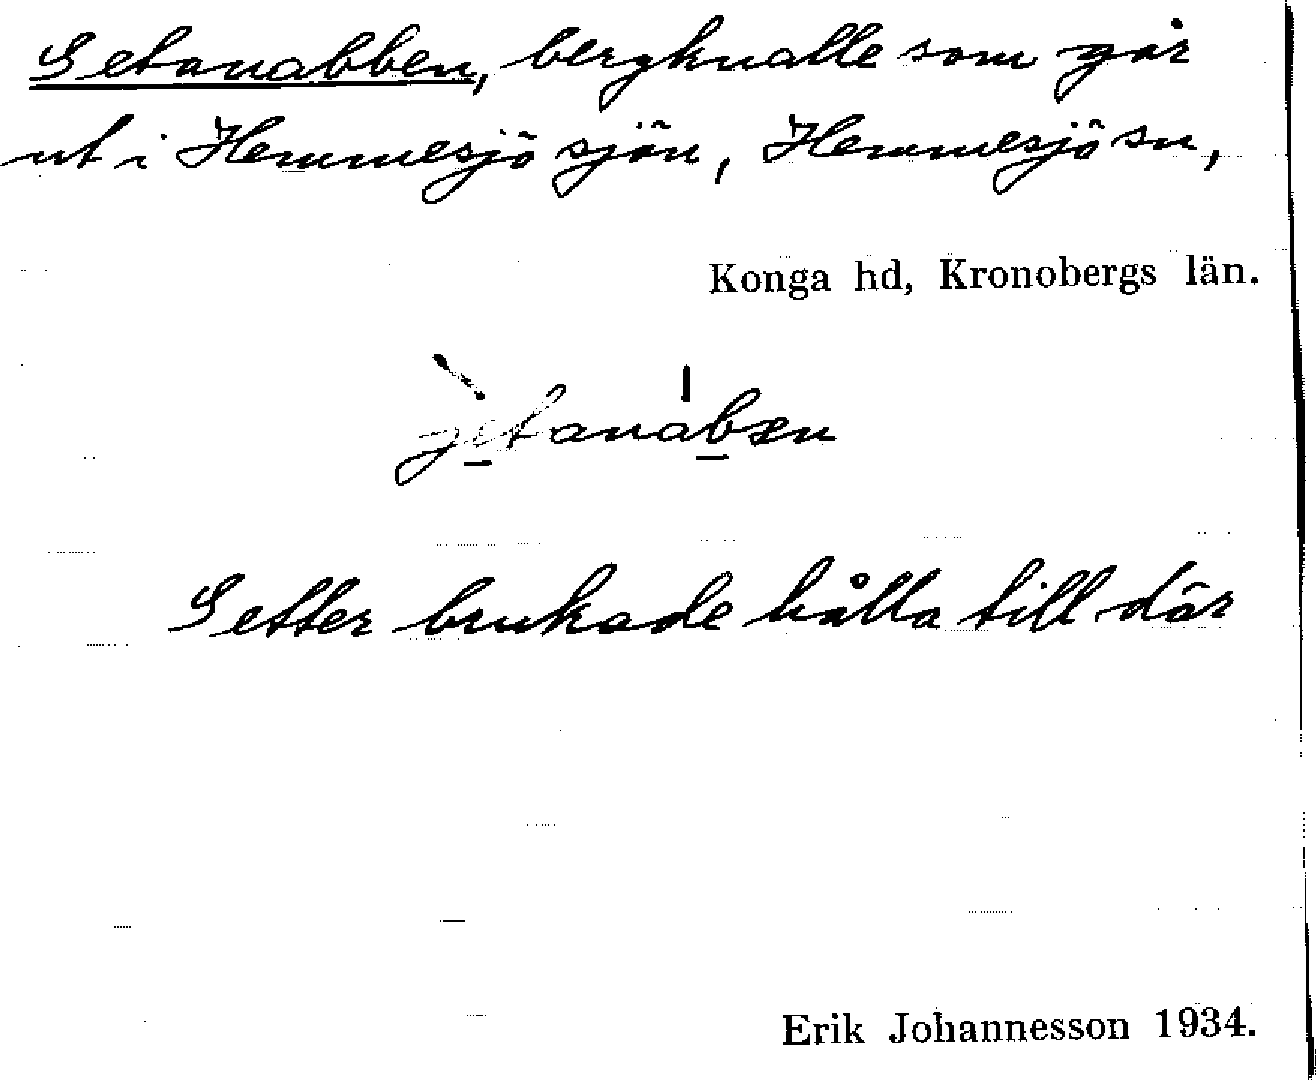 Getanabben, bergknalle som går
ut i Hemmesjö sjön, Hemmesjö sn,
Konga hd, Kronobergs län.
jètanábən
Getter brukade hålla till där
Erik Johannesson 1934.